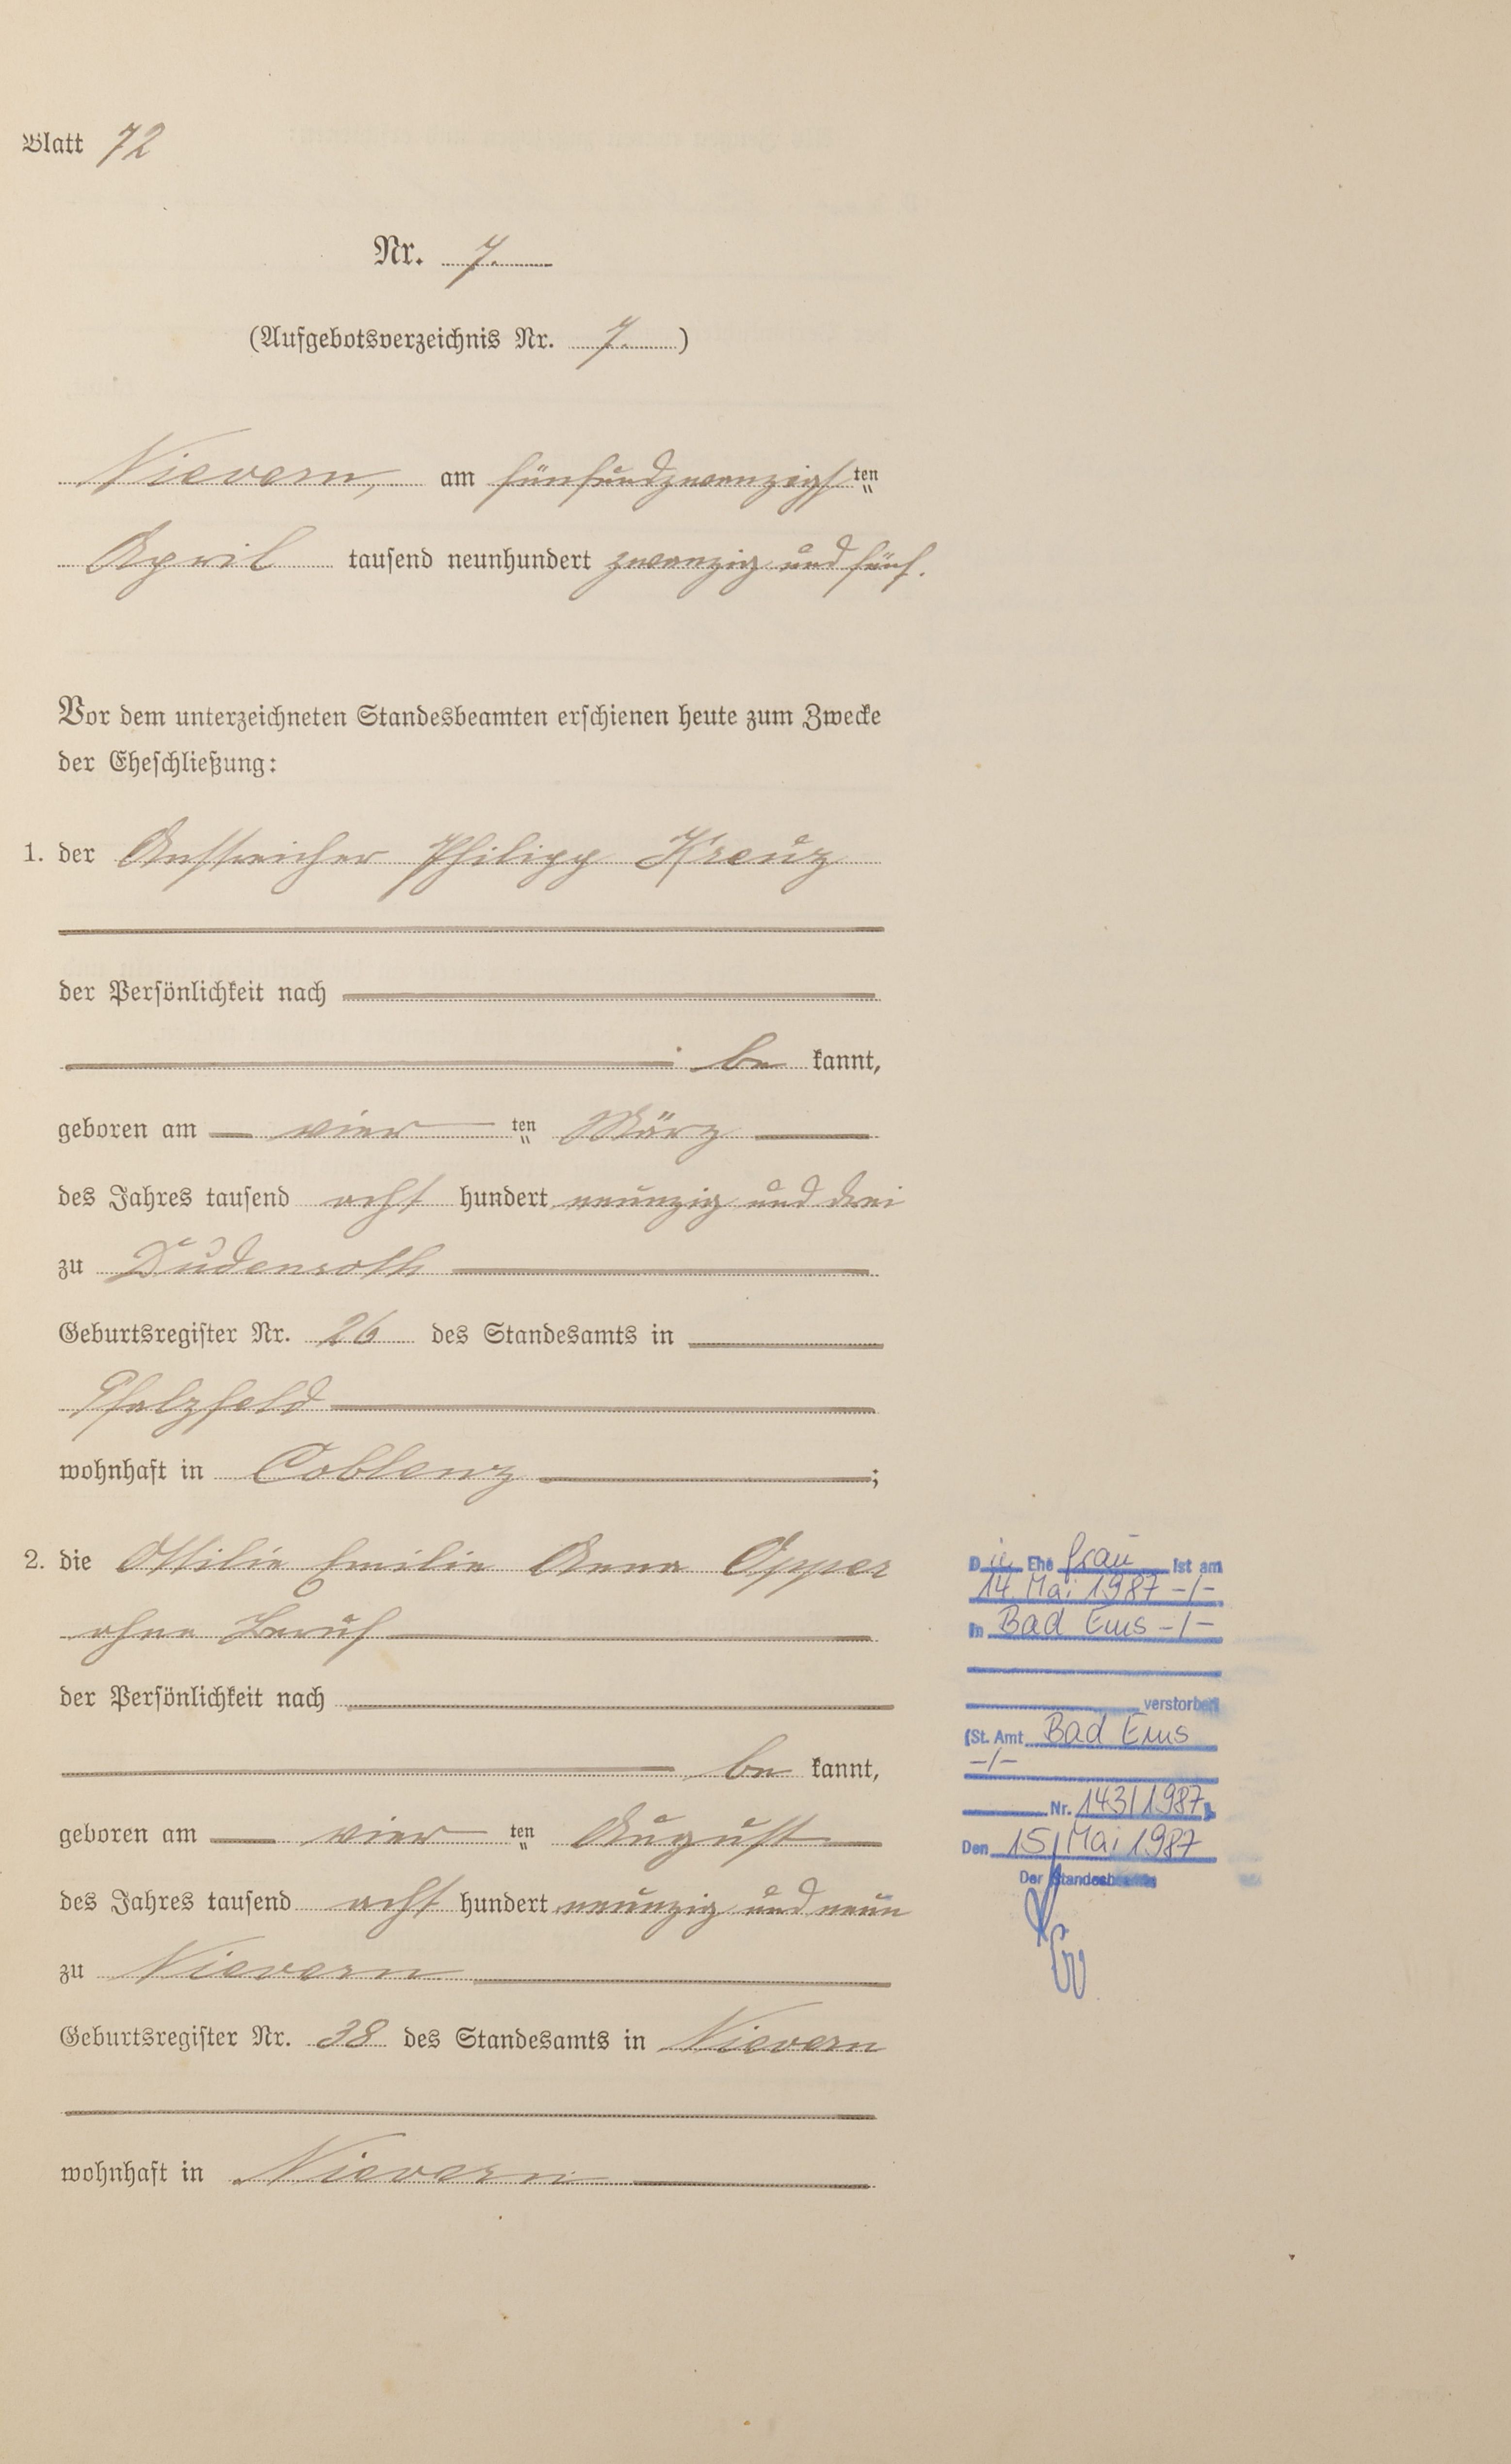 Blatt 72
Nr. 7.
(Aufgebotsverzeichnis Nr. 7.)
Nievern, am fünfundzwanzigsten
April tausend neunhundert zwanzig und fünf.
Vor dem unterzeichneten Standesbeamten erschienen heute zum Zwecke
der Eheschließung:
1. der Anstreicher Philipp Kreuz
der Persönlichkeit nach
be kannt,
geboren am vier ten März
des Jahres tausend acht hundert neunzig und drei
zu Dudenroth
Geburtsregister Nr. 26 des Standesamts in
Pfalzfeld
wohnhaft in Coblenz ;
2. die Ottilie Emilie Anna Opper
ohne Beruf
der Persönlichkeit nach
be kannt,
geboren am vier ten August
des Jahres tausend acht hundert neunzig und neun
zu Nievern
Geburtsregister Nr. 38 des Standesamts in Nievern
wohnhaft in Nievern
Die Ehe frau ist am
14. Mai 1987 -/-
in Bad Ems -/-
verstorben
(St. Amt Bad Ems
-/-
Nr. 143/1987)
Den 15. Mai 1987
Der Standesbeamte